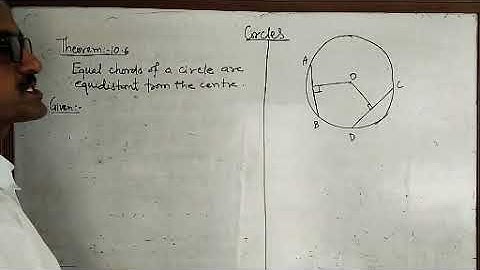 Circles
Theorem:-10.6
Equal chords of a circle are
equidistant from the centre.
Given:-
A
O
C
B
D